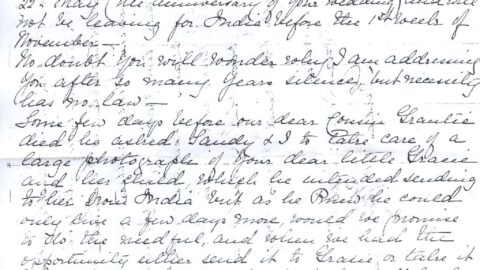 22nd May (the anniversary of your wedding) and will
not be leaving for India before the 1st week of
November —
No doubt you will wonder why I am addressing
you after so many years silence, but necessity
has no law —
Some few days before our dear Cousin Grantie
died he asked Sandy & I to take care of a
large photograph of your dear little Gracie
and her child, which he intended sending
to her from India but as he knew he could
only live a few days more, would we promise
to do the needful, and when we had the
opportunity either send it to Gracie or take it